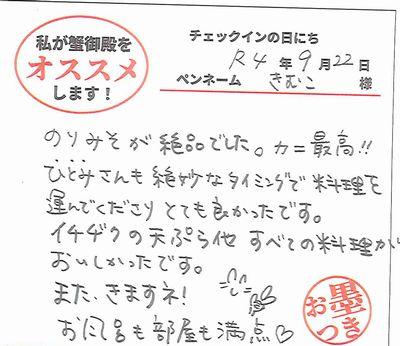 私が蟹御殿を
オススメ
します！
チェックインの日にち
R4年9月22日
ペンネーム きむこ 様
のりみそが絶品でした。カニ最高!!
ひとみさんも絶妙なタイミングで料理を
運んでくださりとても良かったです。
イチヂクの天ぷら他 すべての料理が
おいしかったです。
また、きますネ!
お風呂も部屋も満点♡
お墨つき